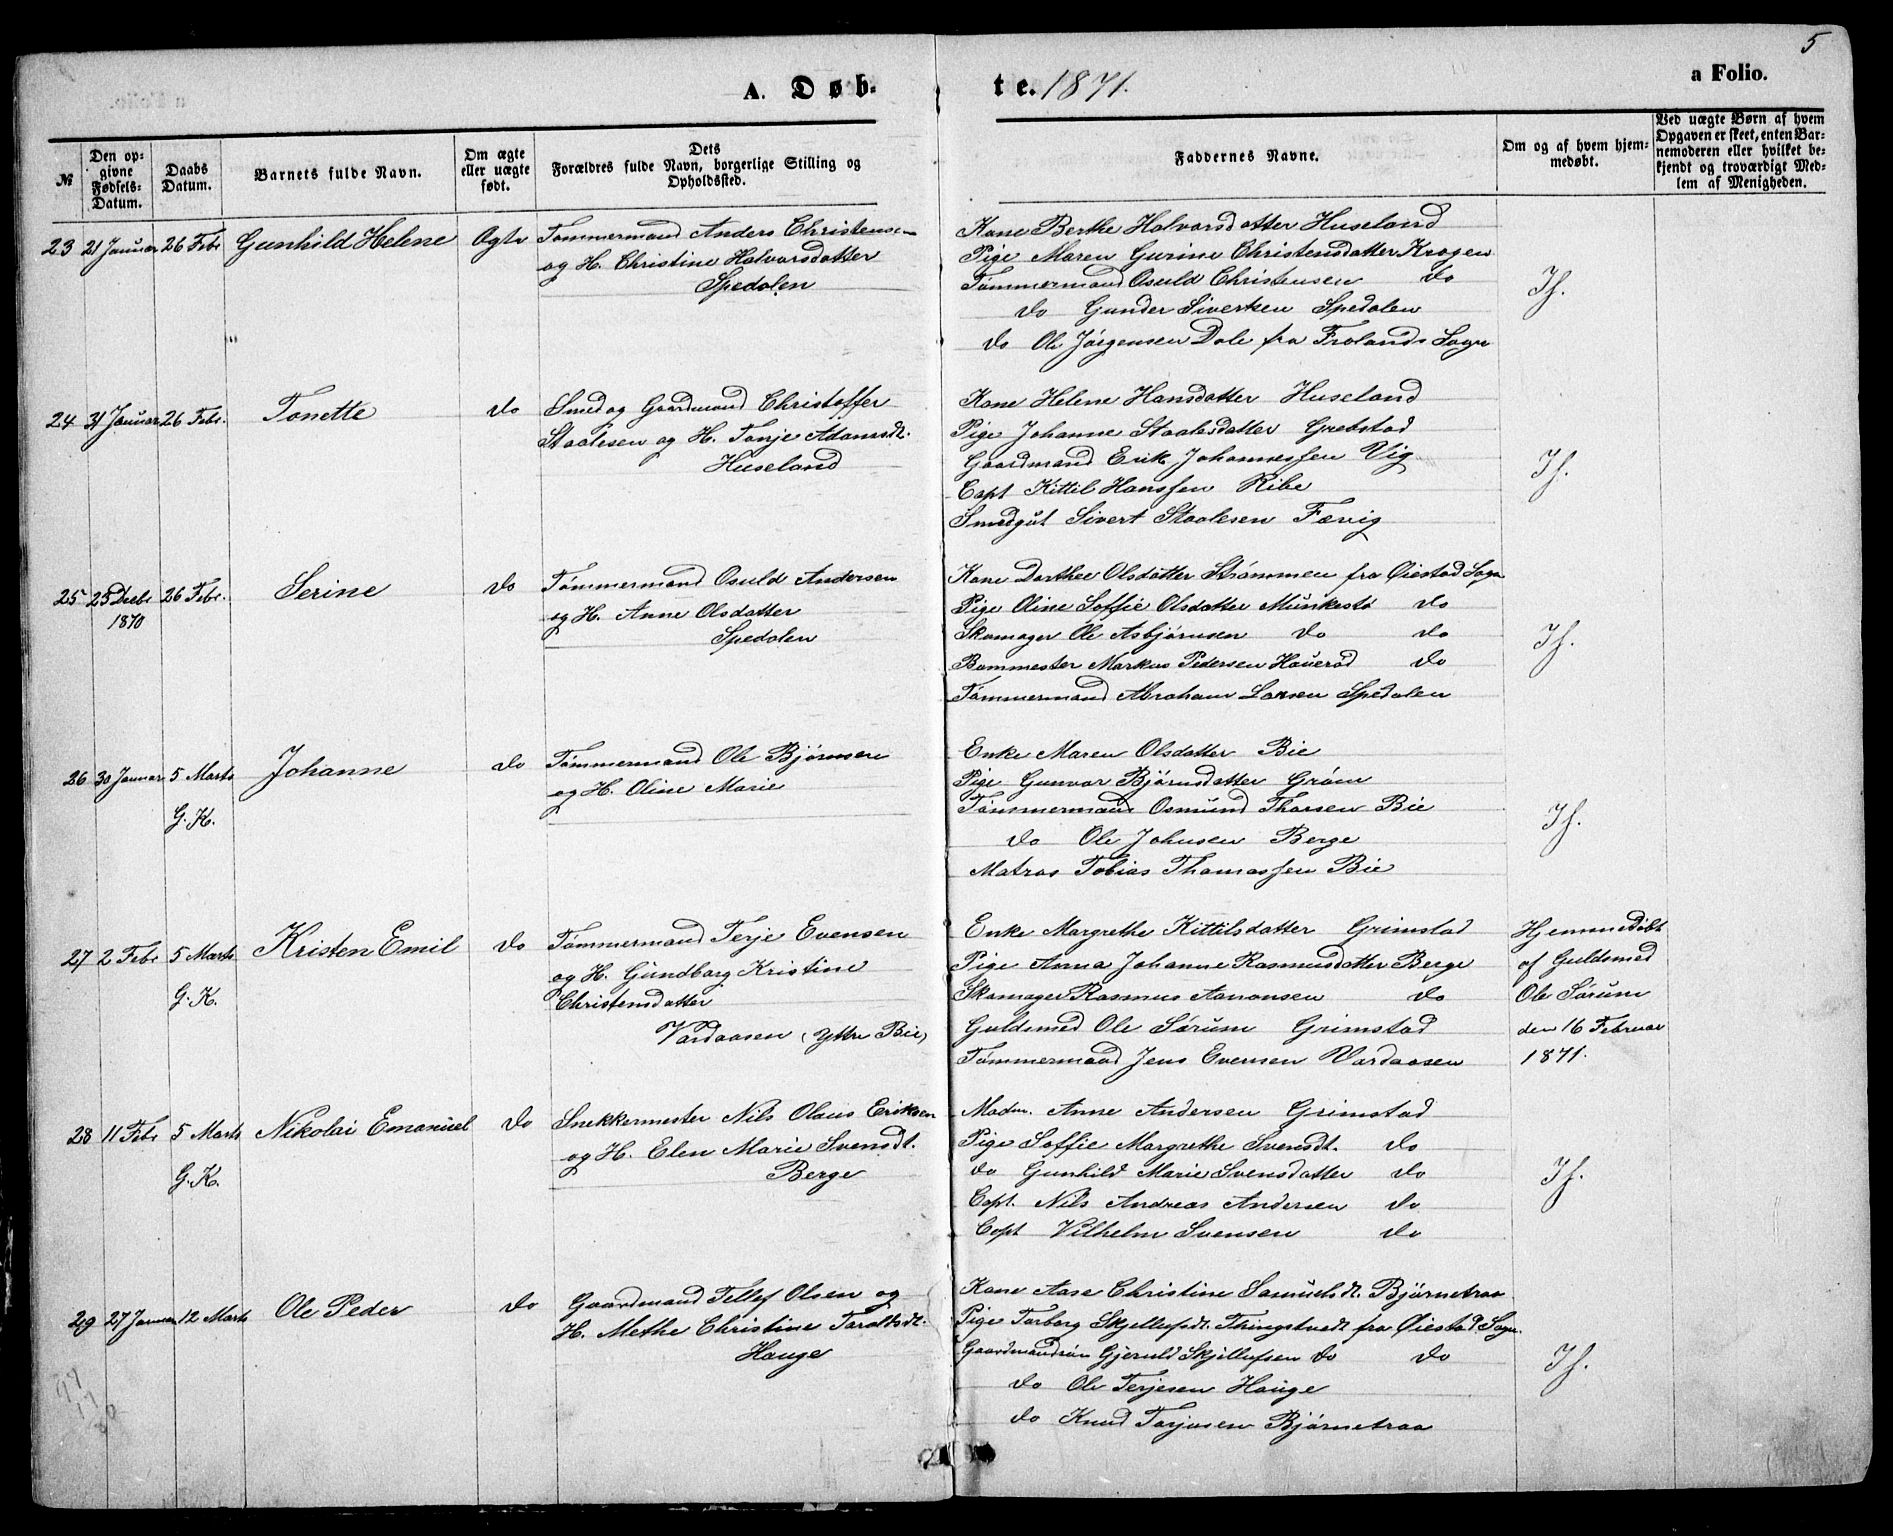 5
A. Døb-
te. 1871.
a Folio.
№
Den op-
givne
Fødsels-
Datum.
Daabs
Datum.
Barnets fulde Navn.
Om ægte
eller uægte
født.
Dets
Forældres fulde Navn, borgerlige Stilling og
Opholdssted.
Faddernes Navne.
Om og af hvem hjem-
medøbt.
Ved uægte Børn af hvem
Opgaven er skeet, enten Bar-
nemoderen eller hvilket be-
kjendt og troværdigt Med-
lem af Menigheden.
23 21 Januar 26 Febr Gunhild Helene Ægte
Tømmermand Anders Christensen
og H. Christine Halvorsdatter
Spedalen
Kone Berthe Halvorsdatter Huseland
Pige Maren Gurine Christensdatter Krogen
Tømmermand Osuld Christensen do
do Gunder Sivertsen Spedalen
do Ole Jørgensen Dale fra Frolands Sogn
If.
24 31 Januar 26 Febr. Tonette do
Smed og Gaardmand Christoffer
Staalesen og H. Tonje Adamsdt.
Huseland
Kone Helene Hansdatter Huseland
Pige Johanne Staalesdatter Grebstad
Gaardmand Erik Johannessen Vig
Capt Kittil Hanssen Ribe
Smedgut Sivert Staalesen Færvig
If.
25 25 Decbr 26 Febr. Serine do
1870
Tømmermand Osuld Andersen
og H. Anne Olsdatter
Spedalen
Kone Dorthee Olsdatter Strømmen fra Øiestad Sogn
Pige Oline Soffie Olsdatter Munkestø do
Skomager Ole Asbjørnsen do do
Bommester Markus Pedersen Haverød do
Tømmermand Abraham Larsen Spedalen
If.
26 30 Januar 5 Marts Johanne do
G. K.
Tømmermand Ole Bjørnsen
og H. Oline Marie
Enke Maren Olsdatter Bie
Pige Gunvor Bjørnsdatter Grøm
Tømmermand Osmund Thorsen Bie
do Ole Johnsen Berge
Matros Tobias Thomassen Bie
If.
27 2 Febr 5 Marts Kristen Emil do
G. K.
Tømmermand Terje Evensen
og H. Gundborg Kristine
Christensdatter
Vardaasen (Yttre Bie)
Enke Margrethe Kittilsdatter Grimstad
Pige Anna Johanne Rasmusdatter Berge
Skomager Rasmus Aanonsen do
Guldsmed Ole Sørum Grimstad
Tømmermand Jens Evensen Vardaasen
Hjemmedøbt
af Guldsmed
Ole Sørum
den 16 Februar
1871.
28 11 Febr 5 Marts Nikolai Emanuel do
G. K.
Snekkermester Nils Olaus Eriksen
og H. Elen Marie Svensdt.
Berge
Madm. Anne Andersen Grimstad
Pige Soffie Margrethe Svensdt. do
do Gunhild Marie Svensdatter do
Capt. Nils Andreas Andersen do
Capt Vilhelm Svensen do
If.
29 27 Januar 12 Marts Ole Peder do
Gaardmand Tellef Olsen og
H. Methe Christine Taraldsdt.
Hauge
Kone Aase Christine Samuelsdt. Bjørnetraa
Pige Torborg Skjellufsdt. Thingstvedt fra Øiestad Sogn.
Gaardmandsøn Gjeruld Skjellufsen do do
do Ole Terjesen Hauge
do Knud Tarjusen Bjørnetraa
If.